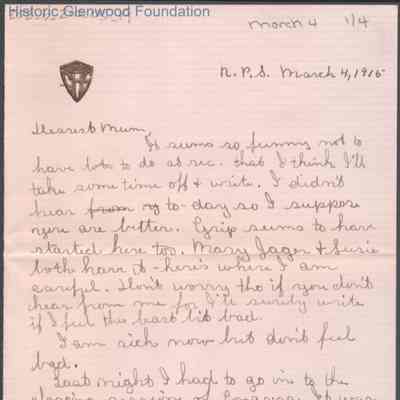 Historic Glenwood Foundation
March 4 1/4
N.P.S. March 4, 1915
Dearest Mum,
It seems so funny not to
have lots to do at rec. that I think I'll
take some time off & write. I didn't
hear to-day so I suppose
you are better. Grip seems to have
started here too. Mary Jager & Susie
both have it - here's where I am
careful. Don't worry tho if you don't
hear from me for I'll surely write
if I feel the least bit bad.
I am sick now but don't feel
bad.
Last night I had to go in to the
closing session of Congress. It was